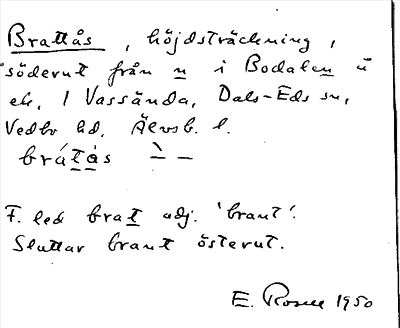 Brattås, höjdsträckning,
söderut från n i Bodalen å
ek. 1 Vassända, Dals-Eds sn,
Vedbo hd, Älvsb. l.
brátás
F. led brat adj. 'brant'.
Sluttar brant österut.
E. 1950